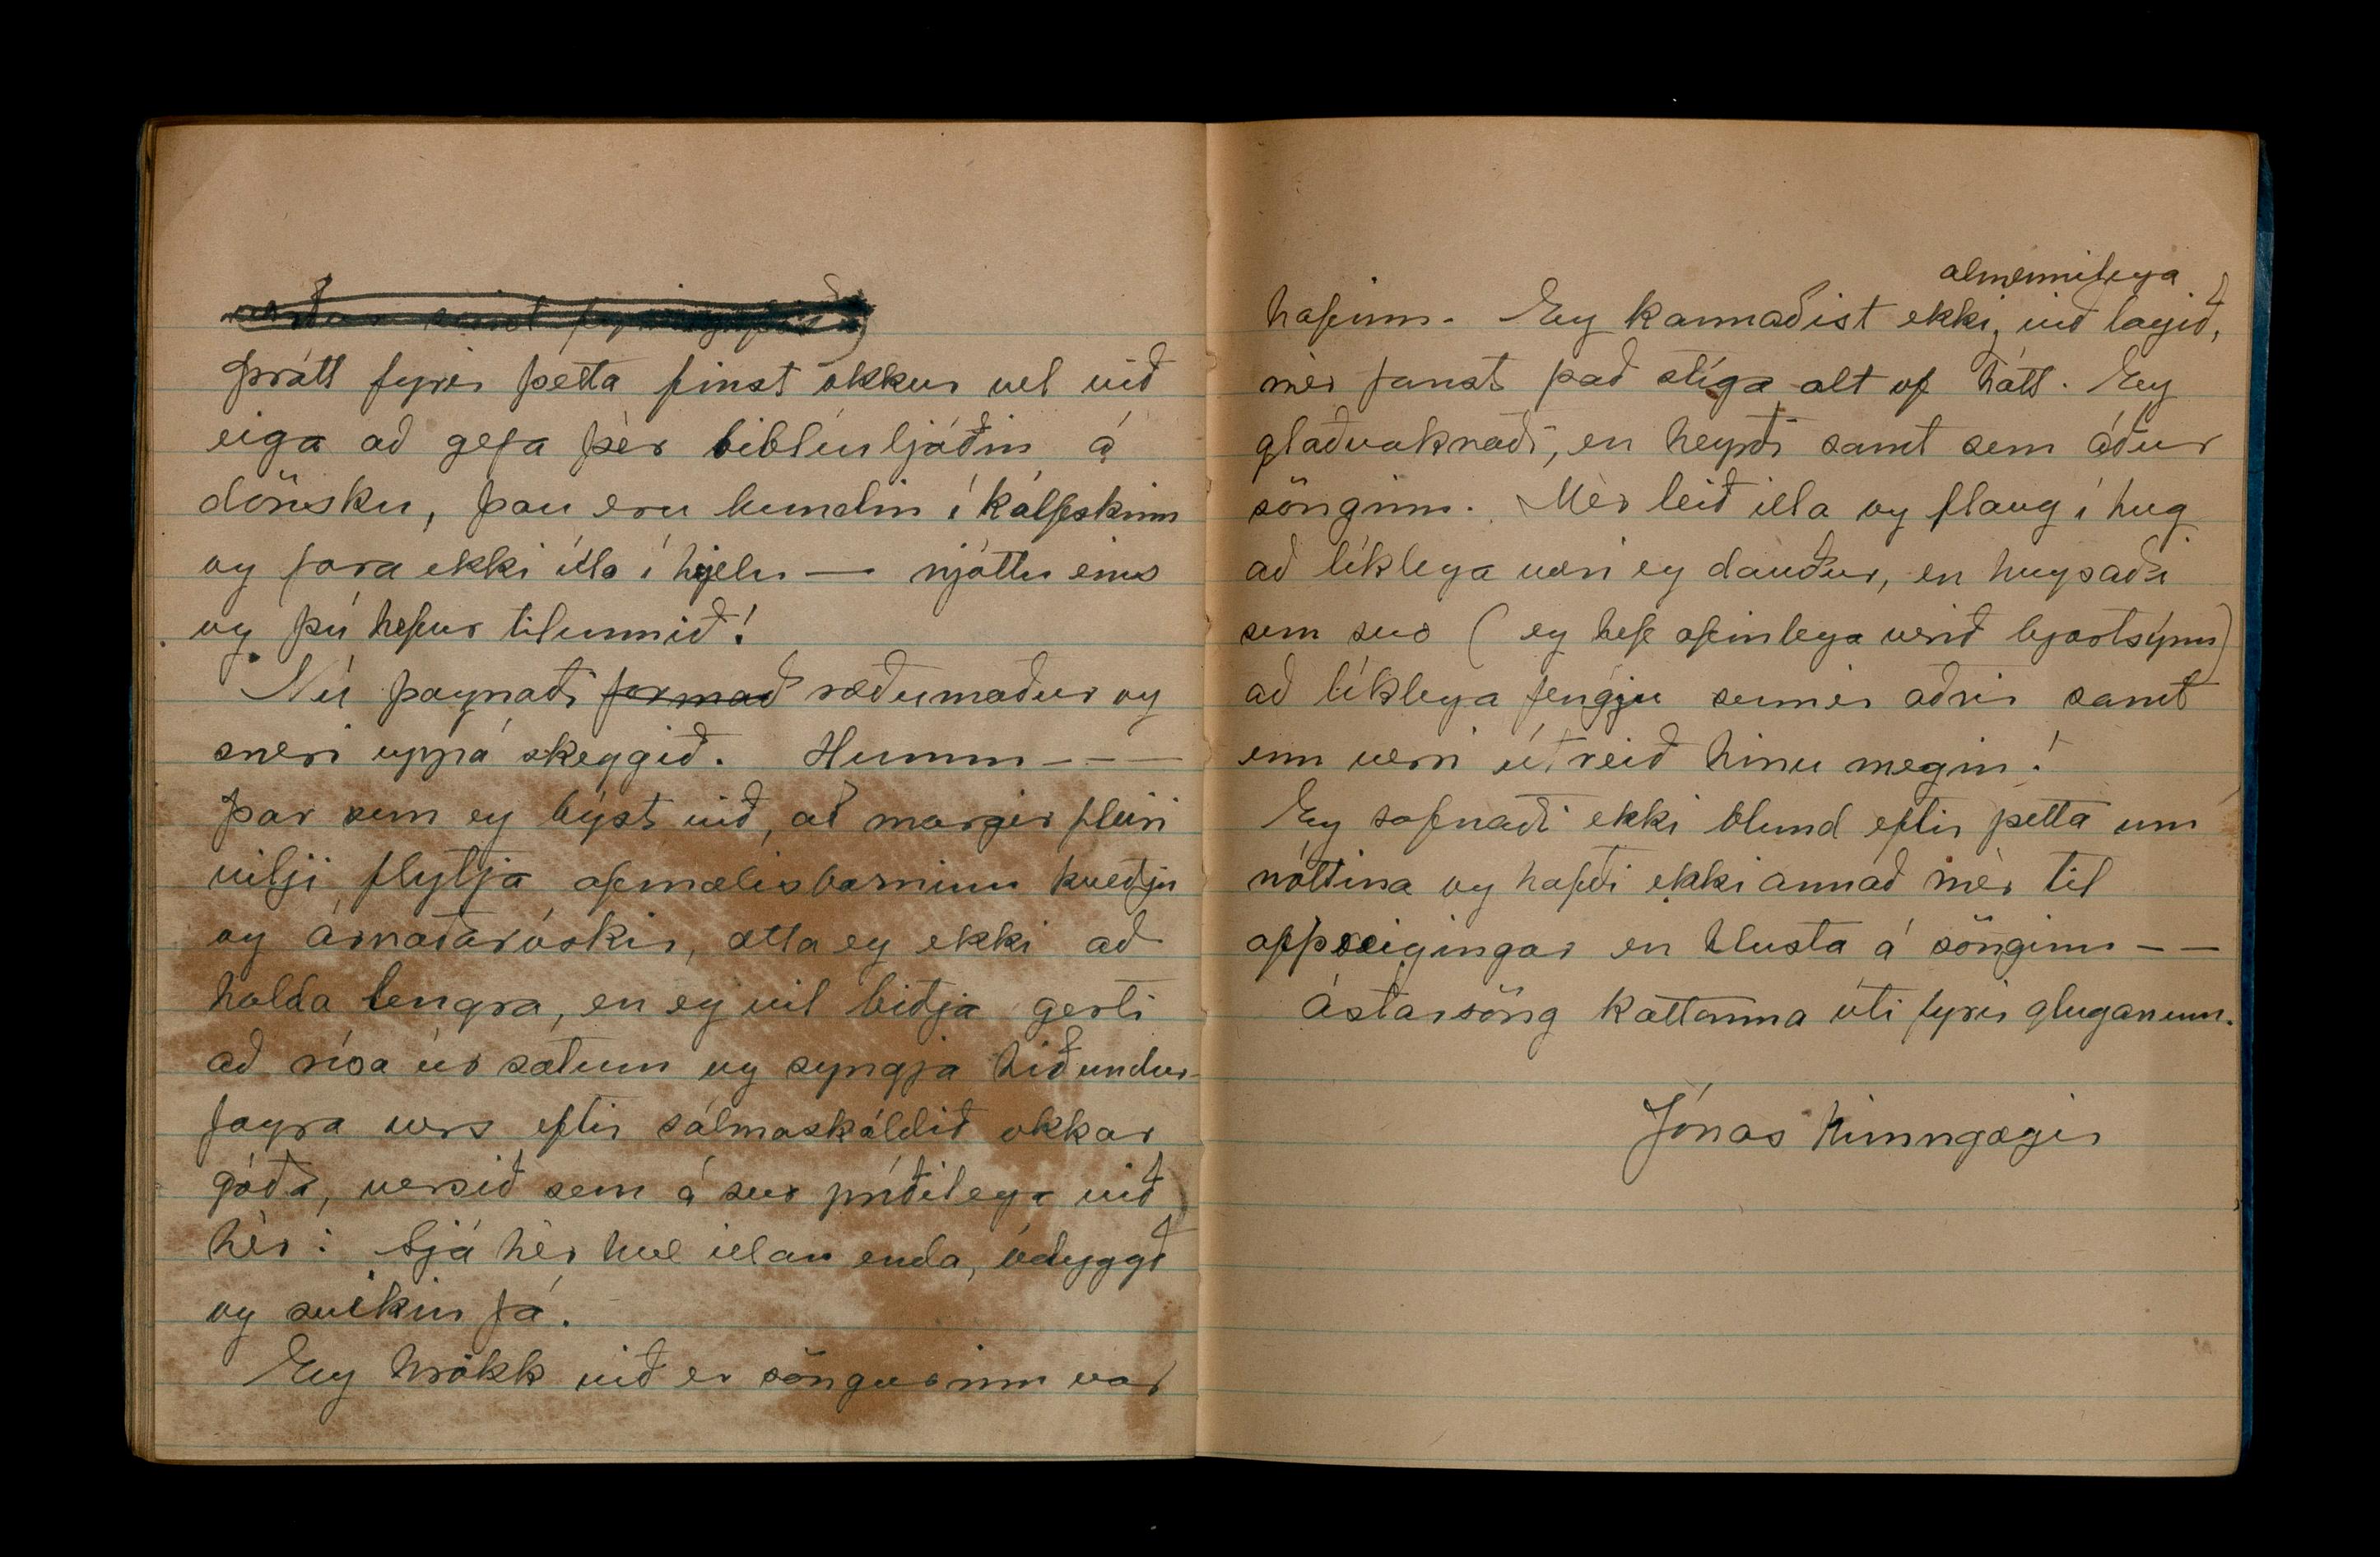 þrátt fyrir þetta finst okkur vel við
eiga að gefa þèr biblíuljóðin á
dönsku, þau eru bundin í kálfskinn
og fara ekki illa í hjelu — njóttu eins
og þú hefur tilunnið!
Nú þagnaði formað ræðumaður og
sneri uppá skeggið. Humm - - -
Þar sem eg býst við, að margir fleiri
vilji flytja afmælisbarninu kveðju
og árnaðaróskir, ætla eg ekki að
halda lengra, en eg vil biðja gesti
að rísa úr sætum og syngja hið undur-
fagra vers eftir sálmaskáldið okkar
góða, versið sem á svo prýðilega við
hèr: Sjá hèr hve illan enda, ódyggð
og svikin fá.
Eg hrökk við er söngurinn var
hafinn. Eg kannaðist ekki almennilega við lagið,
mèr fanst það stíga alt of hátt. Eg
glaðvaknaði, en heyrði samt sem áður
sönginn. Mèr leið illa og flaug í hug
að líklega væri eg dauður, en hugsaði
sem svo (eg hefi æfinlega verið bjartsýnn)
að líklega fengju sumir aðrir samt
enn verri útreið hinu megin!
Eg sofnaði ekki blund eftir þetta um
nóttina og hafði ekki annað mèr til
afþreigingar en hlusta á sönginn - -
Ástarsöng kattanna úti fyrir gluganum.
Jónas Kinngægir